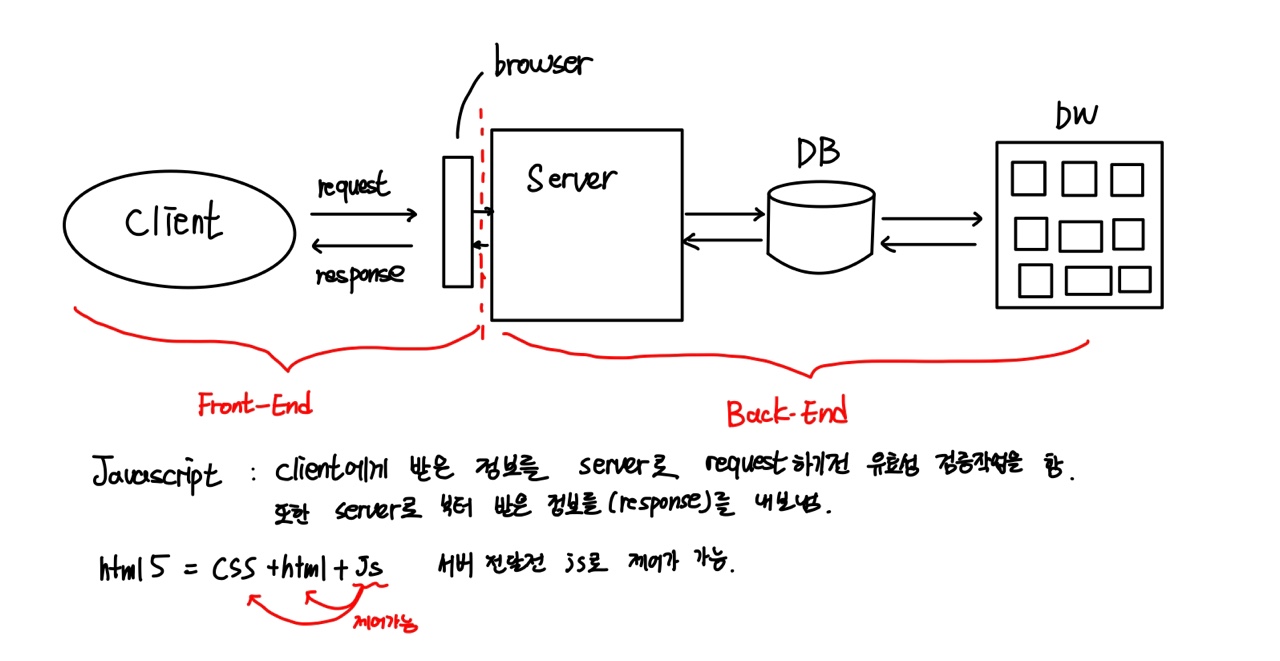 browser
DW
DB
Server
request
Client
response
Front-End
Back-End
Javascript : client에게 받은 정보를 server로 request하기전 유효성 검증작업을 함.
또한 server로 부터 받은 정보를 (response)를 내보냄.
html5 = CSS + html + Js 서버 전달전 js로 제어가 가능.
제어가능